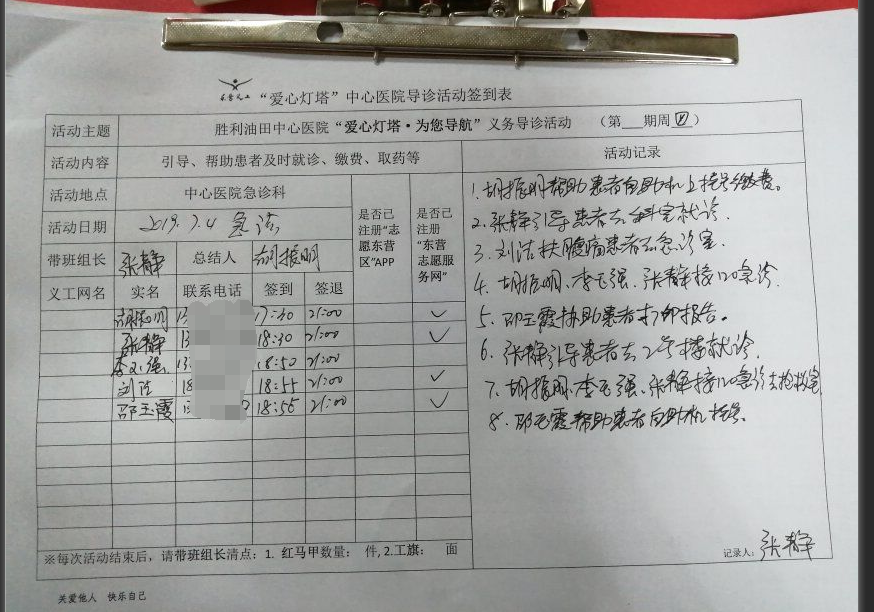 东营义工 “爱心灯塔”中心医院导诊活动签到表
活动主题 胜利油田中心医院“爱心灯塔·为您导航”义务导诊活动 （第___期周四）
活动内容 引导、帮助患者及时就诊、缴费、取药等
活动地点 中心医院急诊科
活动日期 2019.7.4 急诊
带班组长 张静 总结人 胡振明
是否已注册“志愿东营区”APP
是否已注册“东营志愿服务网”
义工网名 实名 联系电话 签到 签退
胡振明 13 17:30 21:00 ✓
张静 13 18:30 21:00 ✓
李 强 13 18:50 21:00
刘洁 18 18:55 21:00 ✓
邵玉霞 18:56 21:00 ✓
※每次活动结束后，请带班组长清点：1. 红马甲数量： 件，2.工旗： 面
活动记录
1.胡振明帮助患者自助机上挂号缴费。
2.张静引导患者去 科室就诊.
3.刘洁扶腰痛患者去急诊室.
4.胡振明、李 强、张静接120急诊.
5.邵玉霞协助患者打印报告。
6.张静引导患者去2号楼就诊.
7.胡振明.李 强、张静接120急诊去抢救室
8.邵玉霞帮助患者自助机挂号。
记录人：张静
关爱他人 快乐自己